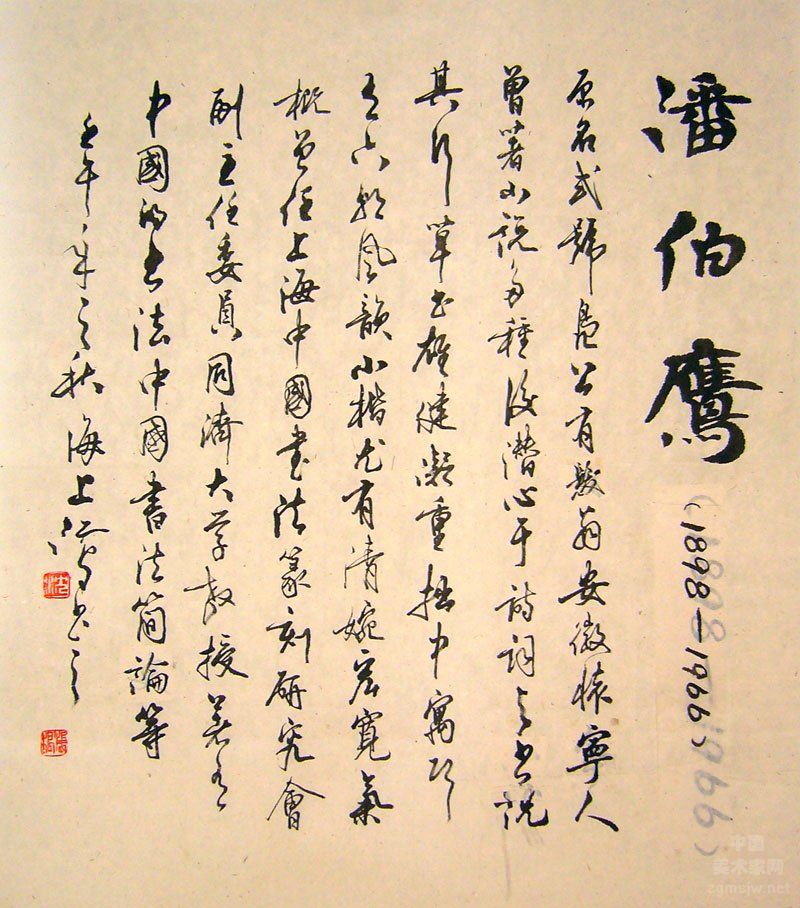 潘伯鷹
(1898—1966)
原名式號鳧公有髮翁安徽懷寧人
曾著小說多種後潛心于詩詞與書說
其行草書雄健凝重拙中寓巧
有六朝風韻小楷尤有清婉宏寬氣
概曾任上海中國書法篆刻研究會
副主任委員同濟大学教授著有
中國的書法中國書法簡論等
壬午年之秋海上書之
中国
美术家网
zgmsjw.net